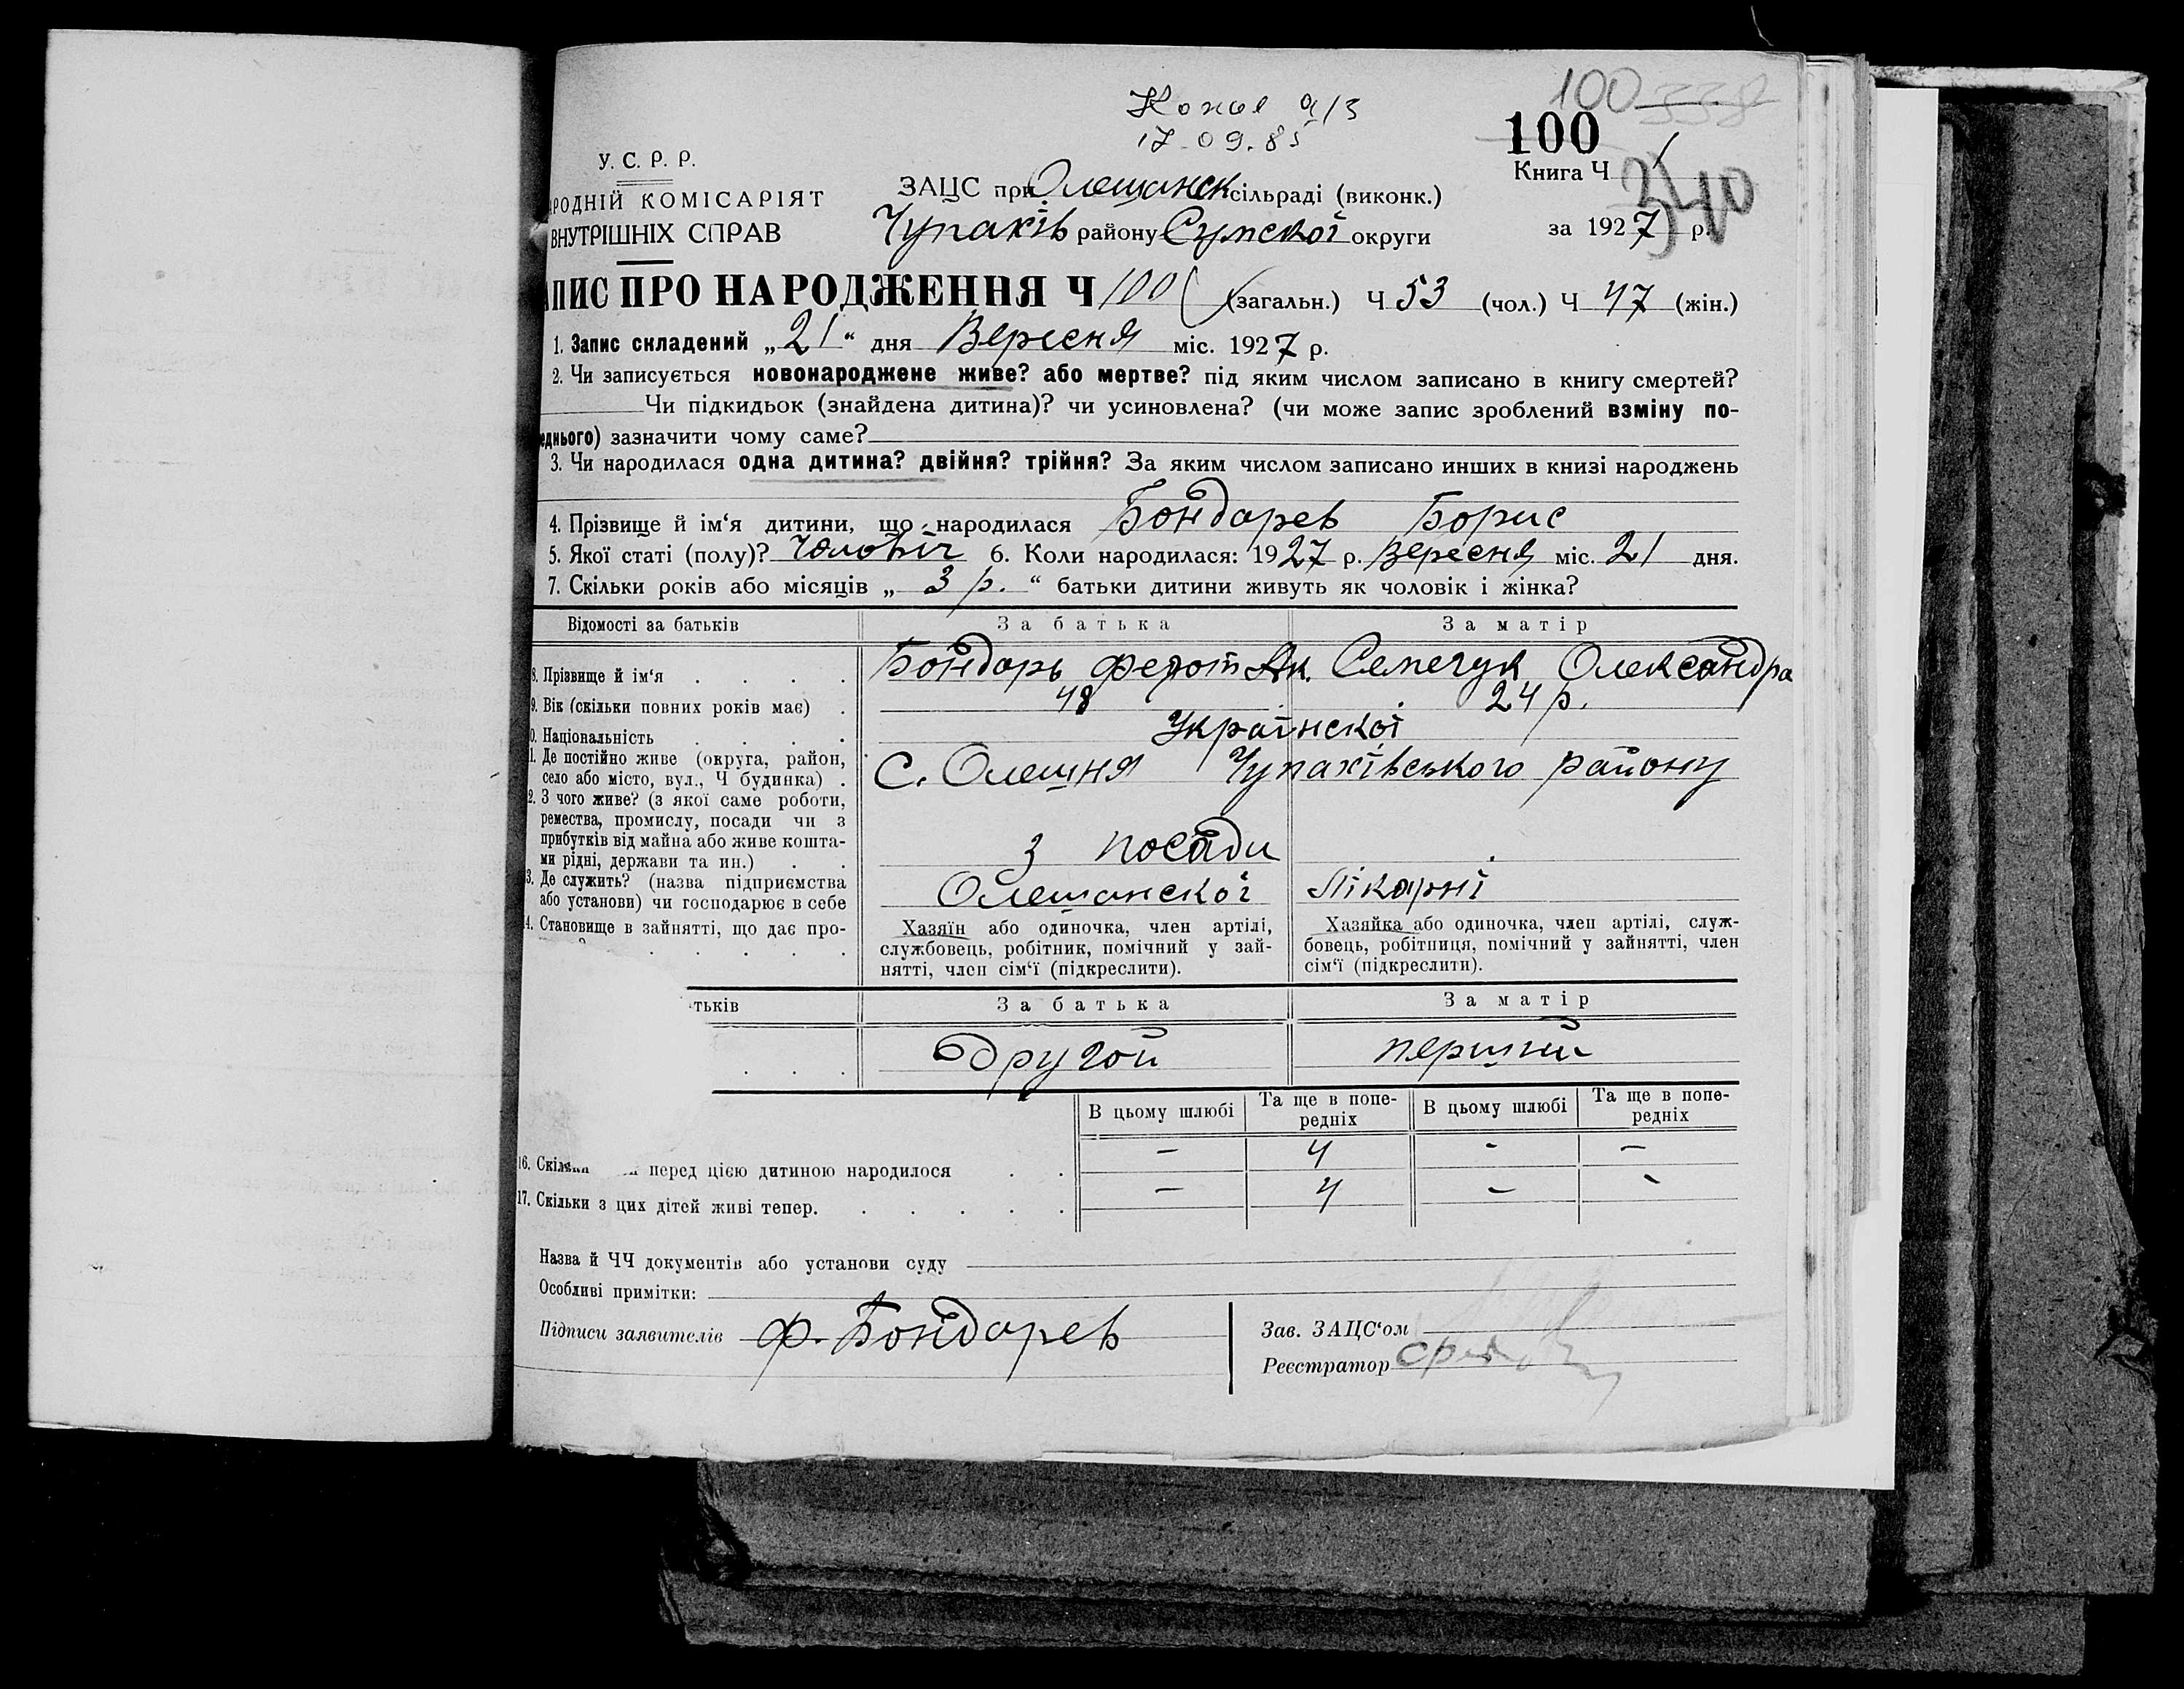 Копия а/з
17.09.85
100 338
100
Книга Ч
340
У. С. Р. Р.
РОДНІЙ КОМІСАРІЯТ
ВНУТРІШНІХ СПРАВ
ЗАЦС при Олешанск сільраді (виконк.)
Чупахів району Сумской округи
за 1927 р.
АПИС ПРО НАРОДЖЕННЯ Ч 100 (загальн.) Ч 53 (чол.) Ч 47 (жін.)
1. Запис складений „21“ дня Вересня міс. 1927 р.
2. Чи записується новонароджене живе? або мертве? під яким числом записано в книгу смертей?
Чи підкидьок (знайдена дитина)? чи усиновлена? (чи може запис зроблений взміну по-
еднього) зазначити чому саме?
3. Чи народилася одна дитина? двійня? трійня? За яким числом записано инших в книзі народжень
4. Прізвище й ім‘я дитини, що народилася Бондарев Борис
5. Якої статі (полу)? Чоловіч 6. Коли народилася: 1927 р. Вересня міс. 21 дня.
7. Скільки років або місяців „ 3 р. “ батьки дитини живуть як чоловік і жінка?
Відомості за батьків За батька За матір
8. Прізвище й ім‘я . . . . Бондарь Федот Ак. Семечук Олександра
9. Вік (скільки повних років має) . 48 24 р.
0. Національність . . . . Українскої
1. Де постійно живе (округа, район,
село або місто, вул., Ч будинка) . С. Олешня Чупахівського району
2. З чого живе? (з якої саме роботи,
ремества, промислу, посади чи з
прибутків від майна або живе кошта-
ми рідні, держави та ин.) . . з посади
3. Де служить? (назва підприємства
або установи) чи господарює в себе Олешанскої Лікарні
4. Становище в зайнятті, що дає про-
Хазяїн або одиночка, член артілі,
службовець, робітник, помічний у зай-
нятті, член сім‘ї (підкреслити).
Хазяйка або одиночка, член артілі, служ-
бовець, робітниця, помічний у зайнятті, член
сім‘ї (підкреслити).
тьків За батька За матір
Другой перший
В цьому шлюбі Та ще в попе-
редніх В цьому шлюбі Та ще в попе-
редніх
16. перед цією дитиною народилося . . – 4 – –
17. Скільки з цих дітей живі тепер. . . . . . – 4 – –
Назва й ЧЧ документів або установи суду
Особливі примітки:
Підписи заявителів Ф. Бондарев
Зав. ЗАЦС‘ом
Реєстратор